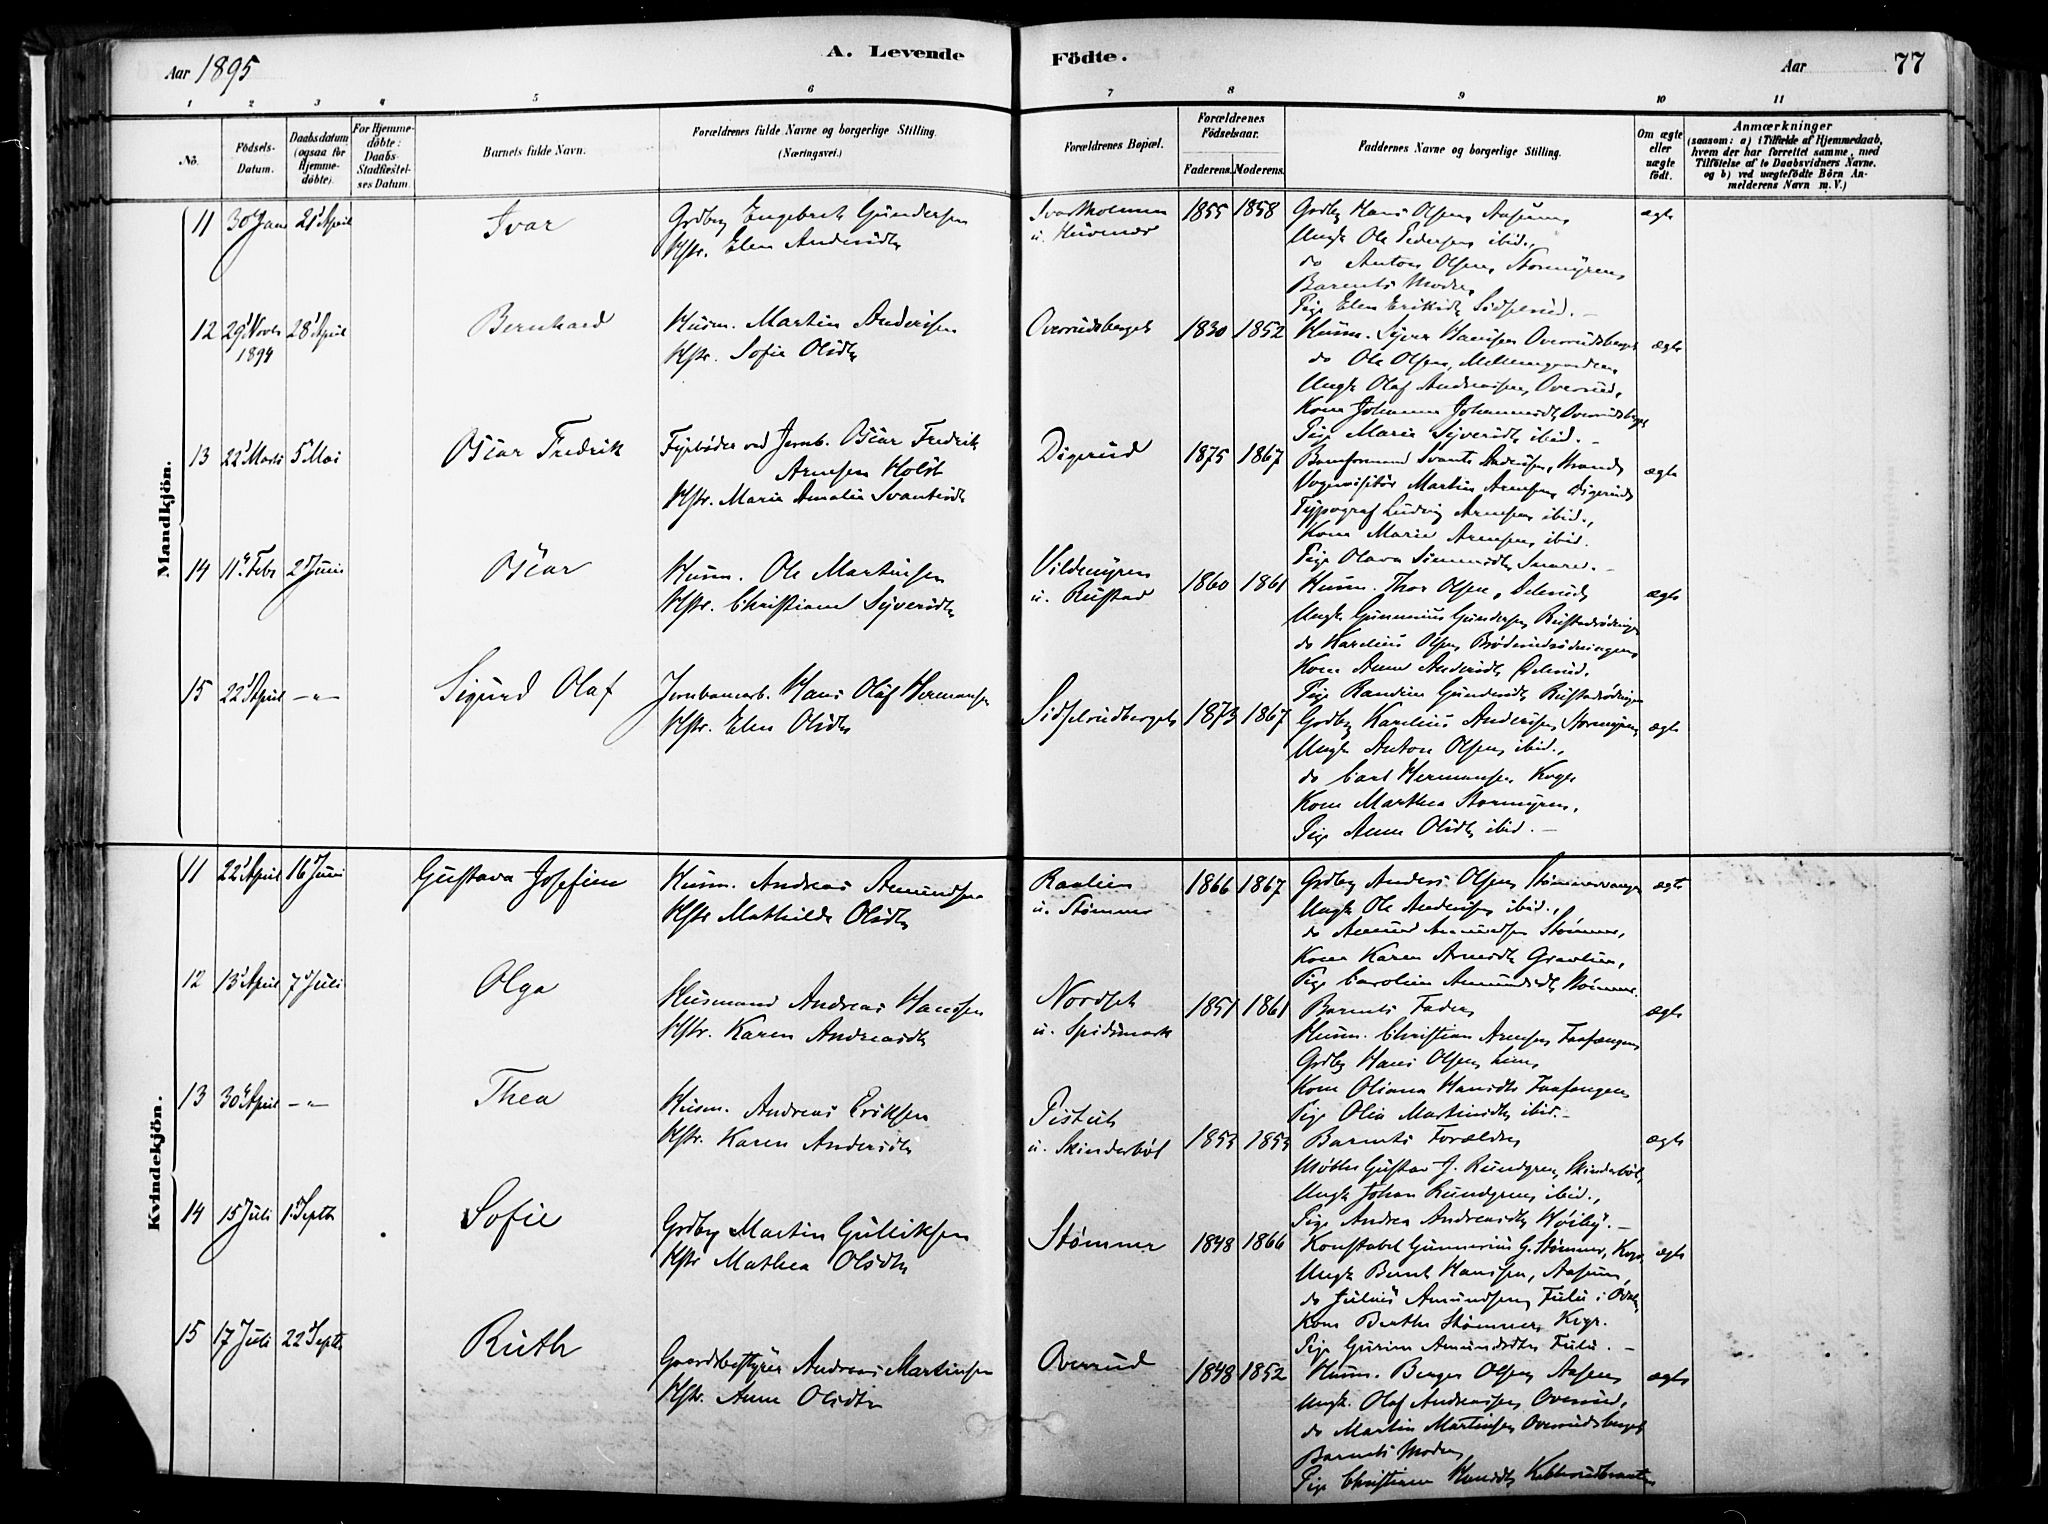 Aar 1895
A. Levende
Födte.
Aar
77
1 2 3 4 5 6 7 8 9 10 11
No.
Födsels-Datum.
Daabsdatum (ogsaa for Hjemme-döbte).
For Hjemme-döbte: Daabs-Stadfæstel-ses Datum.
Barnets fulde Navn.
Forældrenes fulde Navne og borgerlige Stilling.
(Næringsvei.)
Forældrenes Bopæl.
Forældrenes Födselsaar.
Faderens. Moderens.
Faddernes Navne og borgerlige Stilling.
Om ægte eller uægte födt.
Anmærkninger
(saasom: a) i Tilfælde af Hjemmedaab, hvem der har forrettet samme, med Tilföielse af to Daabsvidners Navne. og b) ved uægtefödte Börn An-melderens Navn m. V.)
Mandkjön.
11 30 Jan 21 April Ivar
Grdbr Engebret Gundersen
Hstr. Elen Andersdtr
1855 1858
Grdbr Hans Olsen, Aasum,
Ungk Ole Pedersen ibid.,
do Anton Olsen, Stormyren,
Barnets Moder,
Pige Elen Eriksdtr Sidselrud. –
ægte
12 29 Novbr 1894 28 April Bernhard
Husm. Martin Andersen
Hstr. Sofie Olsdtr
Overrudsberget 1830 1852
Husm. Syver Hansen Overrudsberget
do Ole Olsen,
Ungk Olaf Andreassen, Overrud,
Kone Johanne Johannesdtr Overrudsberget
Pige Marie Syversdtr ibid. –
ægte
13 22 Marts 5 Mai Oscar Fredrik
Fyrbøder ved Jernb. Oscar Fredrik
Arnesen Holst
Hstr. Marie Amalie Svantesdtr
Digerud 1875 1867
Baneformand Svante Andersen, Strand,
Vognvisitør Martin Arnesen, Digerud,
Typograf Ludvig Arnesen ibid.,
Kone Marie Arnesen, ibid.
Pige Olava Simensdtr
ægte
14 11 Febr 2 Juni Oscar
Husm. Ole Martinsen
Hstr. Christiane Syversdtr
Vildemyren
u. Rustad
1860 1861
Husm. Thor Olsen, Delerud,
Ungk Gunnerius Gundersen
do Karelius Olsen
Kone Anne Andersdtr Delerud.
Pige Randine Gundersdtr
ægte
15 22 April –"– Sigurd Olaf
Jernbanearb. Hans Olaf Hermansen
Hstr. Elen Olsdtr
Sidselrudberget 1873 1867
Grdbr Karelius Andersen Stormyren,
Ungk Anton Olsen, ibid.,
do Carl Hermansen
Kone Marthea Stormyren,
Pige Anne Olsdtr ibid. –
ægte
Kvindekjön.
11 22 April 16 Juni Gustava Josefine
Husm. Andreas Amundsen
Hstr Mathilde Olsdtr
u. Stømner
1866 1867
Grdbr Anders Olsen
Ungk Ole Andersen ibid.,
do Amund Amundsen Stømner,
Kone Karen Arnesdtr
Pige Caroline Amundsdtr Stømner.
ægte
12 13 April 7 Juli Olga
Husmand Andreas Hansen
Hstr. Karen Andreasdtr
Nordset
u. Spidsmark
1851 1861
Barnets Fader,
Husm. Christian Arnesen Taafangen,
Grdbr Hans Olsen, Lien,
Kone Oliana Hansdtr Taafangen
Pige Olia Martinsdtr ibid. –
ægte
13 30 April –"– Thea
Husm. Andreas Eriksen
Hstr. Karen Andersdtr
u. Skinderbøl
1853 1853
Barnets Forældre
Møller Gustav J. Rundgren, Skinderbøl,
Ungk Johan Rundgren, ibid.,
Pige Andrea Andreasdtr Høiby. –
ægte
14 15 Juli 1 Septbr Sofie
Grdbr Martin Gulliksen
Hstr Mathea Olsdtr
Stømner 1848 1866
Konstabel Gunnerius G. Stømner,
Ungk Bernt Hansen, Aasum,
do Julius Amundsen, Fulu i
Kone Berthe Stømner,
Pige Gurine Amundsdtr Fulu. –
ægte
15 17 Juli 22 Septbr Ruth
Gaardsbestyrer Andreas Martinsen
Hstr. Anne Olsdtr
Overrud 1848 1852
Husm. Berger Olsen, Aasen,
Ungk. Olaf Andreassen Overrud,
do Martin Martinsen Overrudsberget
Barnets Moder,
Pige Christine Hansdtr
ægte